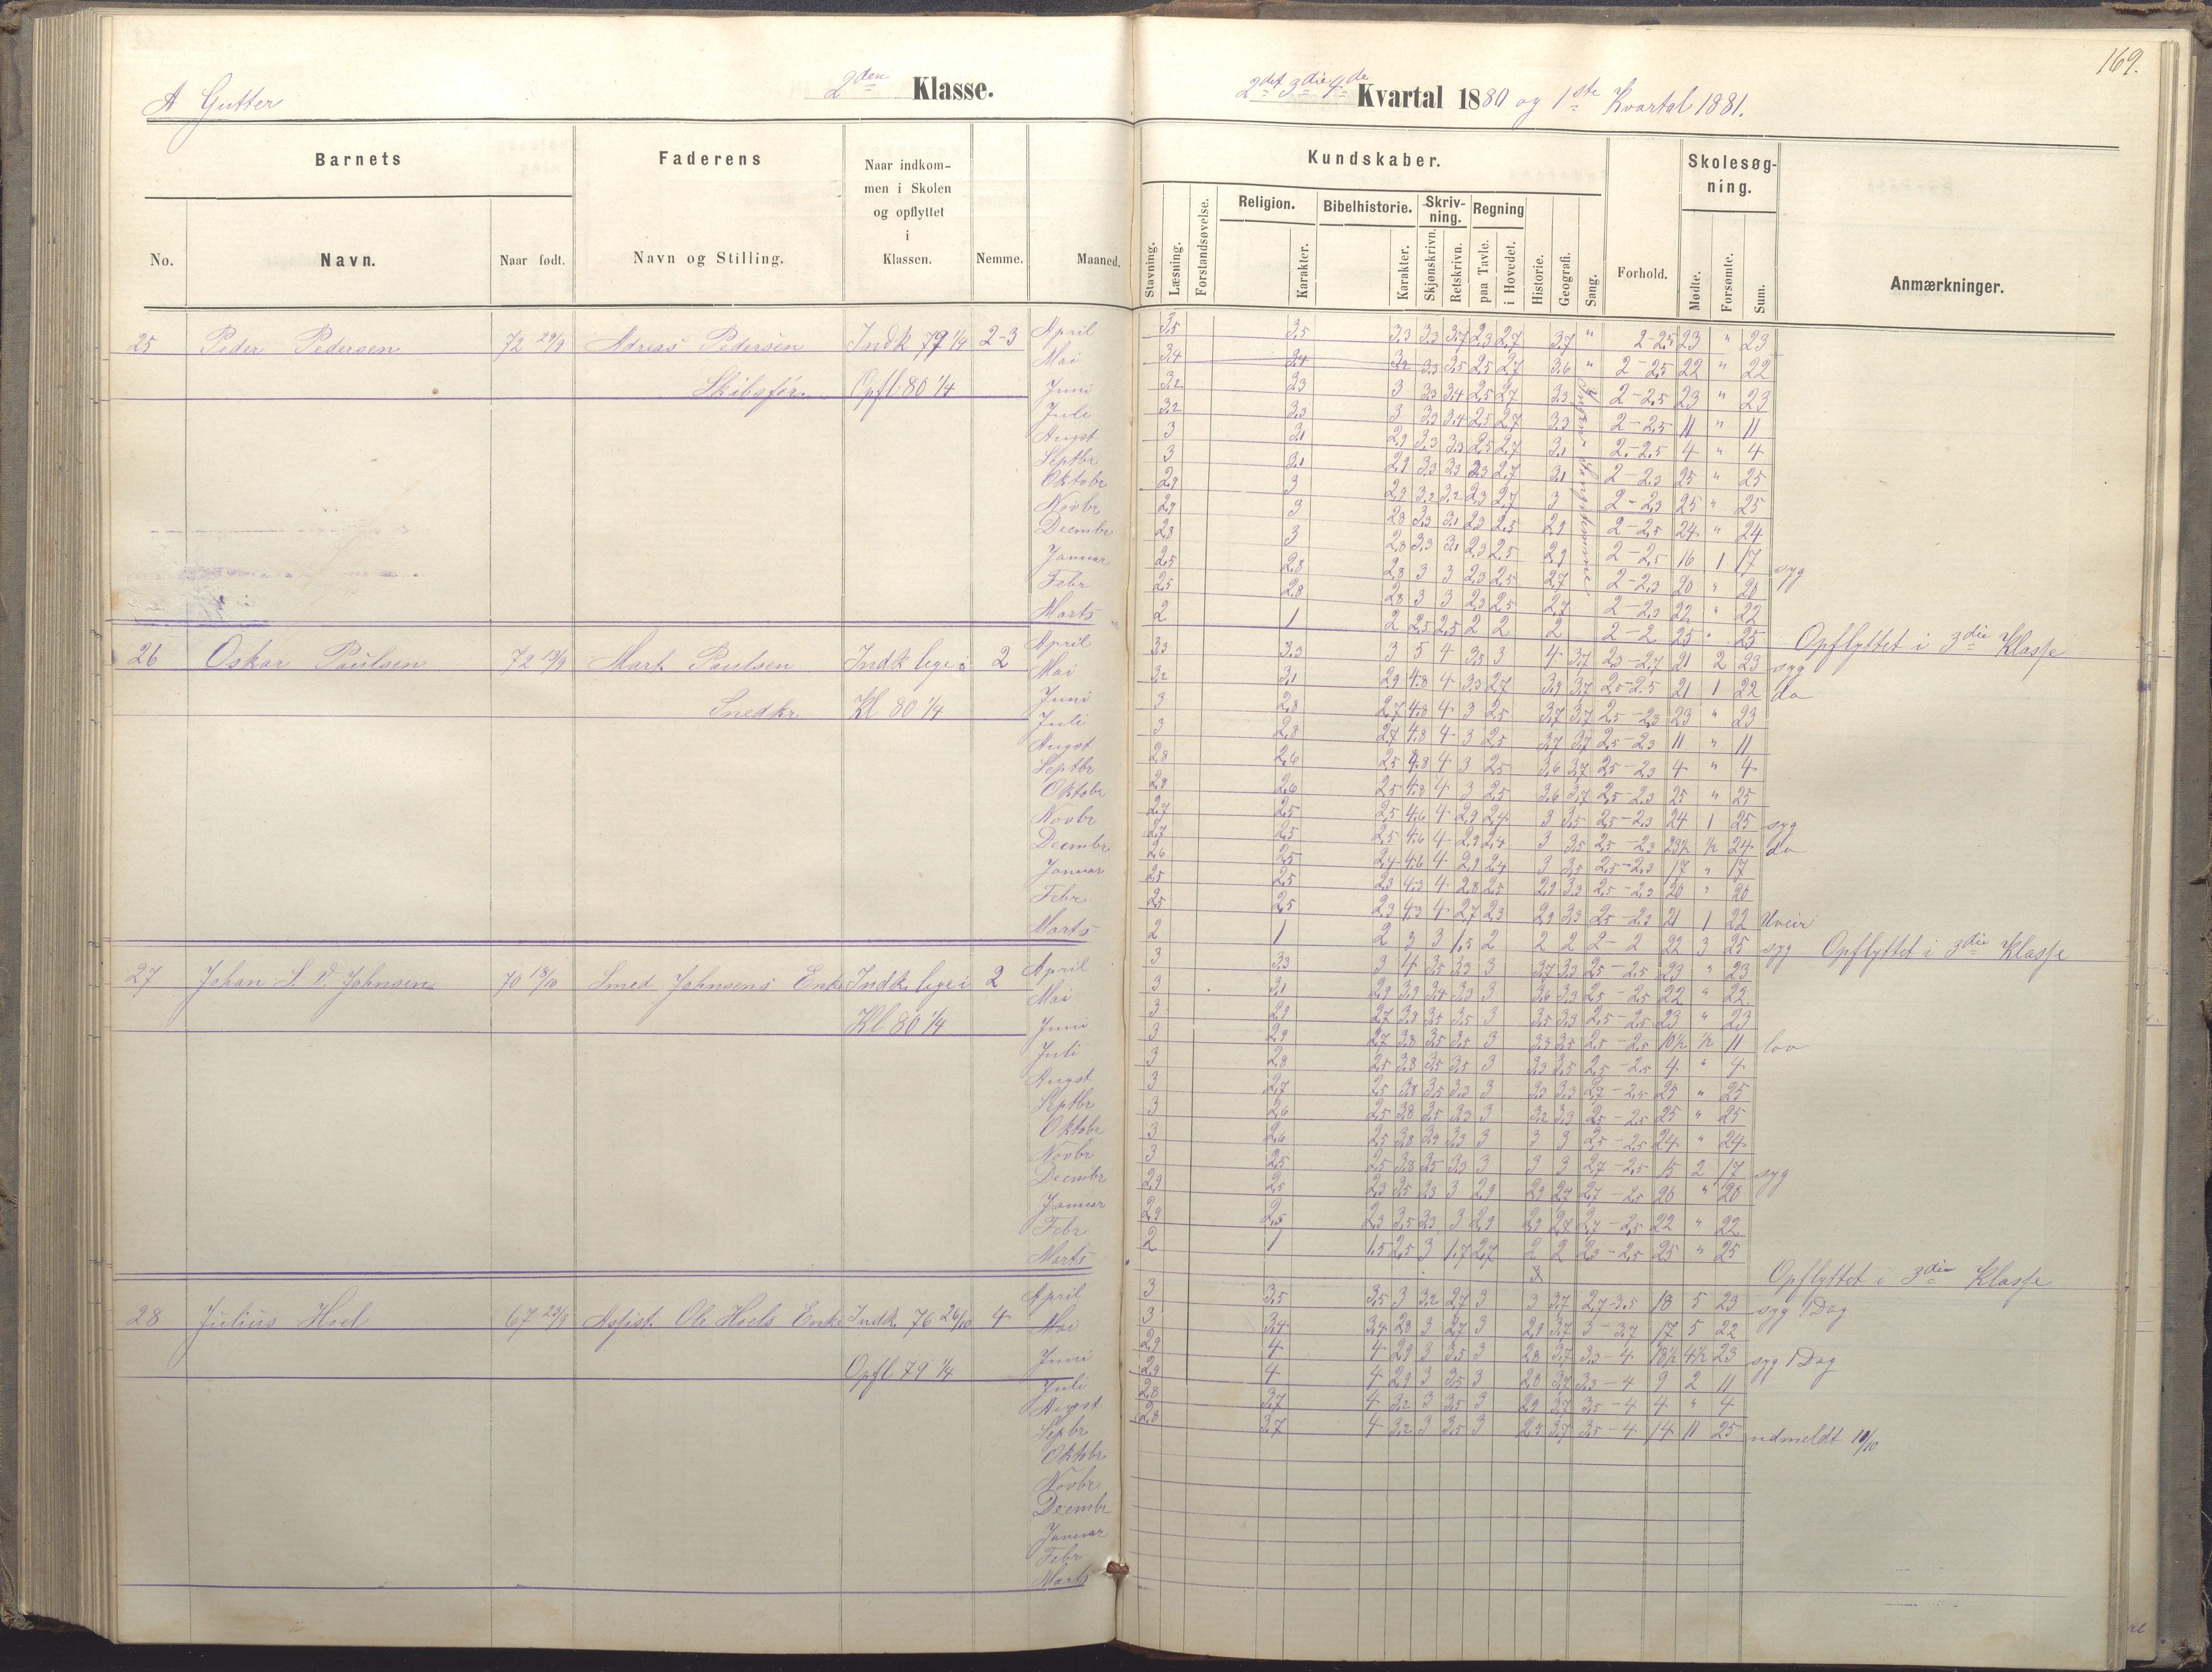 169.
A Gutter
2den Klasse.
2det 3die 4de Kvartal 1880 og 1ste Kvartal 1881.
Barnets
Faderens
Naar indkom-
men i Skolen
og opflyttet
i
Klassen.
No.
Navn.
Naar født.
Navn og Stilling.
Nemme.
Maaned.
Kundskaber.
Skolesøg-
ning.
Stavning.
Læsning.
Forstandsøvelse.
Religion.
Karakter.
Bibelhistorie.
Karakter.
Skriv-
ning.
Skjønskrivn.
Retskrivn.
Regning
paa Tavle.
i Hovedet.
Historie.
Geografi.
Sang.
Forhold.
Mødte.
Forsømte.
Sum.
Anmærkninger.
25 Peder Pedersen 72 29/9 Adreas Pedersen Indk 79 1/4 2-3
Skibsfør. Opfl 80 1/4
April 3,5 3,5 3,3 3,3 3,7 2,3 2,7 3,7 " 2-2,5 23 " 23
Mai 3,4 3,4 3,2 3,3 3,5 2,5 2,7 3,6 " 2-2,5 22 " 22
Juni 3,2 3,3 3 3,3 3,4 2,5 2,7 3,3 2-2,5 23 " 23
Juli 3,2 3,3 3 3,3 3,4 2,5 2,7 3,3 2-2,5 11 " 11
Augst 3 3,1 2,9 3,3 3,3 2,5 2,7 3,1 2-2,5 4 " 4
Septbr 3 3,1 2,9 3,3 3,3 2,3 2,7 3,1 2-2,3 25 " 25
Oktobr 2,9 3 2,9 3,2 3,2 2,3 2,7 3 2-2,3 25 " 25
Novbr 2,9 3 2,8 3,3 3,1 2,3 2,5 2,9 2-2,5 24 " 24
Decmbr 2,8 3 2,8 3,3 3,1 2,3 2,5 2,9 2-2,5 16 1 17 syg
Januar 2,5 2,8 2,8 3 3 2,3 2,5 2,7 2-2,3 20 " 20
Febr 2,5 2,8 2,8 3 3 2,3 2,5 2,7 2-2,3 22 " 22
Marts 2 1 2 2,5 2,5 2 2 2 2-2 25 " 25 Opflyttet i 3die Klasse
26 Oskar Paulsen 72 13/9 Mart. Paulsen Indk lige i 2
Snedkr Kl 80 1/4
April 3,3 3,3 3 5 4 3,5 3 4 3,7 2,3-2,7 21 2 23 syg
Mai 3,2 3,1 2,9 4,8 4 3,3 2,7 3,9 3,7 2,5-2,5 21 1 22 do
Juni 3 2,8 2,7 4,8 4 3 2,5 3,7 3,7 2,5-2,3 23 " 23
Juli 3 2,8 2,7 4,8 4 3 2,5 3,7 3,7 2,5-2,3 11 " 11
Augst 2,8 2,6 2,5 4,8 4 3 2,5 3,6 3,7 2,5-2,3 4 " 4
Septbr 2,8 2,6 2,5 4,8 4 3 2,5 3,6 3,7 2,5-2,3 25 " 25
Oktobr 2,7 2,5 2,5 4,6 4 2,9 2,4 3 3,5 2,5-2,3 24 1 25 syg
Novbr 2,7 2,5 2,5 4,6 4 2,9 2,4 3 3,5 2,5-2,3 23 1/2 1/2 24 do
Decmbr 2,6 2,5 2,4 4,6 4 2,9 2,4 3 3,5 2,5-2,3 17 " 17
Januar 2,5 2,5 2,3 4,3 4 2,8 2,5 2,9 3,3 2,5-2,3 20 " 20
Febr. 2,5 2,5 2,3 4,3 4 2,7 2,3 2,9 3,3 2,5-2,3 21 1 22 Uveir
Marts 2 1 2 3 3 1,5 2 2 2 2-2 22 3 25 syg Opflyttet i 3die Klasse
27 Johan S. V. Johnsen 70 18/10 Smed Johnsens Enke Indk. lige i 2
Kl 80 1/4
April 3 3,3 3 4 3,5 3,3 3 3,7 3,3 2,5-2,5 23 " 23
Mai 3 3,1 2,9 3,9 3,4 3,3 3 3,6 3,3 2,5-2,5 22 " 22
Juni 3 2,9 2,7 3,8 3,5 3,5 3 3,5 3,3 2,5-2,5 23 " 23
Juli 3 2,9 2,7 3,8 3,5 3,5 3 3,3 3,5 2,5-2,5 10 1/2 1/2 11 lov
Augst 3 2,8 2,5 3,8 3,5 3,5 3 3,3 3,5 2,5-2,5 4 " 4
Septbr 3 2,7 2,5 3,8 3,5 3,3 3 3,3 3,3 2,7-2,5 25 " 25
Oktobr 3 2,6 2,5 3,8 3,5 3,3 3 3,2 3,3 2,5-2,5 25 " 25
Novbr 3 2,6 2,5 3,8 3,5 3,3 3 3 3 2,5-2,5 24 " 24
Decmbr 3 2,5 2,5 3,8 3,5 3,3 3 3 3 2,7-2,5 15 2 17 syg
Januar 2,9 2,5 2,3 3,5 3,3 3 2,9 2,9 2,7 2,7-2,5 20 " 20
Febr 2,9 2,5 2,3 3,5 3,3 3 2,9 2,9 2,7 2,7-2,5 22 " 22
Marts 2 1 1,5 2,5 3 1,7 2,7 2 2 2,3-2,5 25 " 25
Opflyttet i 3die Klasse
28 Julius Hoel 67 23/9 Assist. Ole Hoels Enke Indk. 76 26/10 4
Opfl 79 1/4
April 3 3,5 3,5 3 3,2 2,7 3 3 3,7 2,7-3,5 18 5 23 syg 1 Dag
Mai 3 3,4 3,4 2,8 3 2,7 3 2,9 3,7 3-3,7 17 5 22
Juni 2,9 4 4 2,9 3 3,5 3 2,8 3,7 3,3-4 18 1/2 4 1/2 23 syg 1 Dag
Juli 2,9 4 4 2,9 3 3,5 3 2,8 3,7 3,3-4 9 2 11
Augst 2,8 3,7 4 3,2 3 3,5 3 2,9 3,7 3,5-4 4 " 4
Sepbr 2,8 3,7 4 3,2 3 3,5 3 2,9 3,7 3,5-4 14 11 25 udmeldt 11/10
Oktobr
Novbr
Decmbr
Januar
Febr
Marts